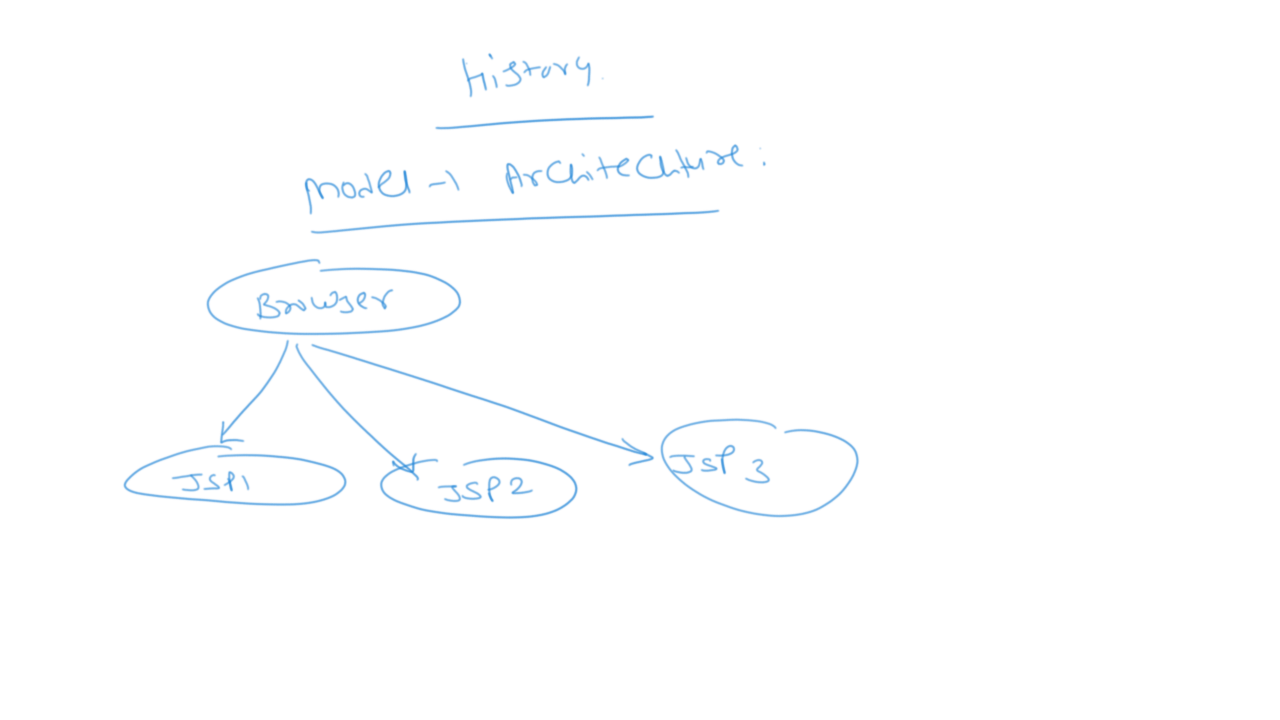 History.
Model-1 Architechture:
Browser
JSP1
JSP2
JSP 3